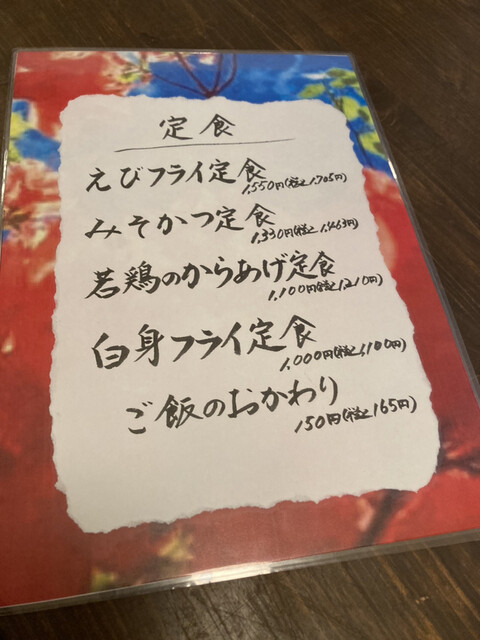 定食
えびフライ定食
1,550円(税込1,705円)
みそかつ定食
1,330円(税込1,463円)
若鶏のからあげ定食
1,100円(税込1,210円)
白身フライ定食
1,000円(税込1,100円)
ご飯のおかわり
150円(税込165円)